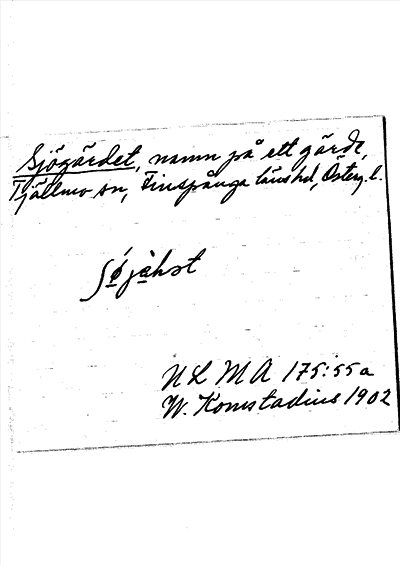 Sjögärdet, namn på ett gärde,
Tjällmo sn, Finspånga läns hd, Österg. l.
NLMA 175:55a
W. Komstadius 1902